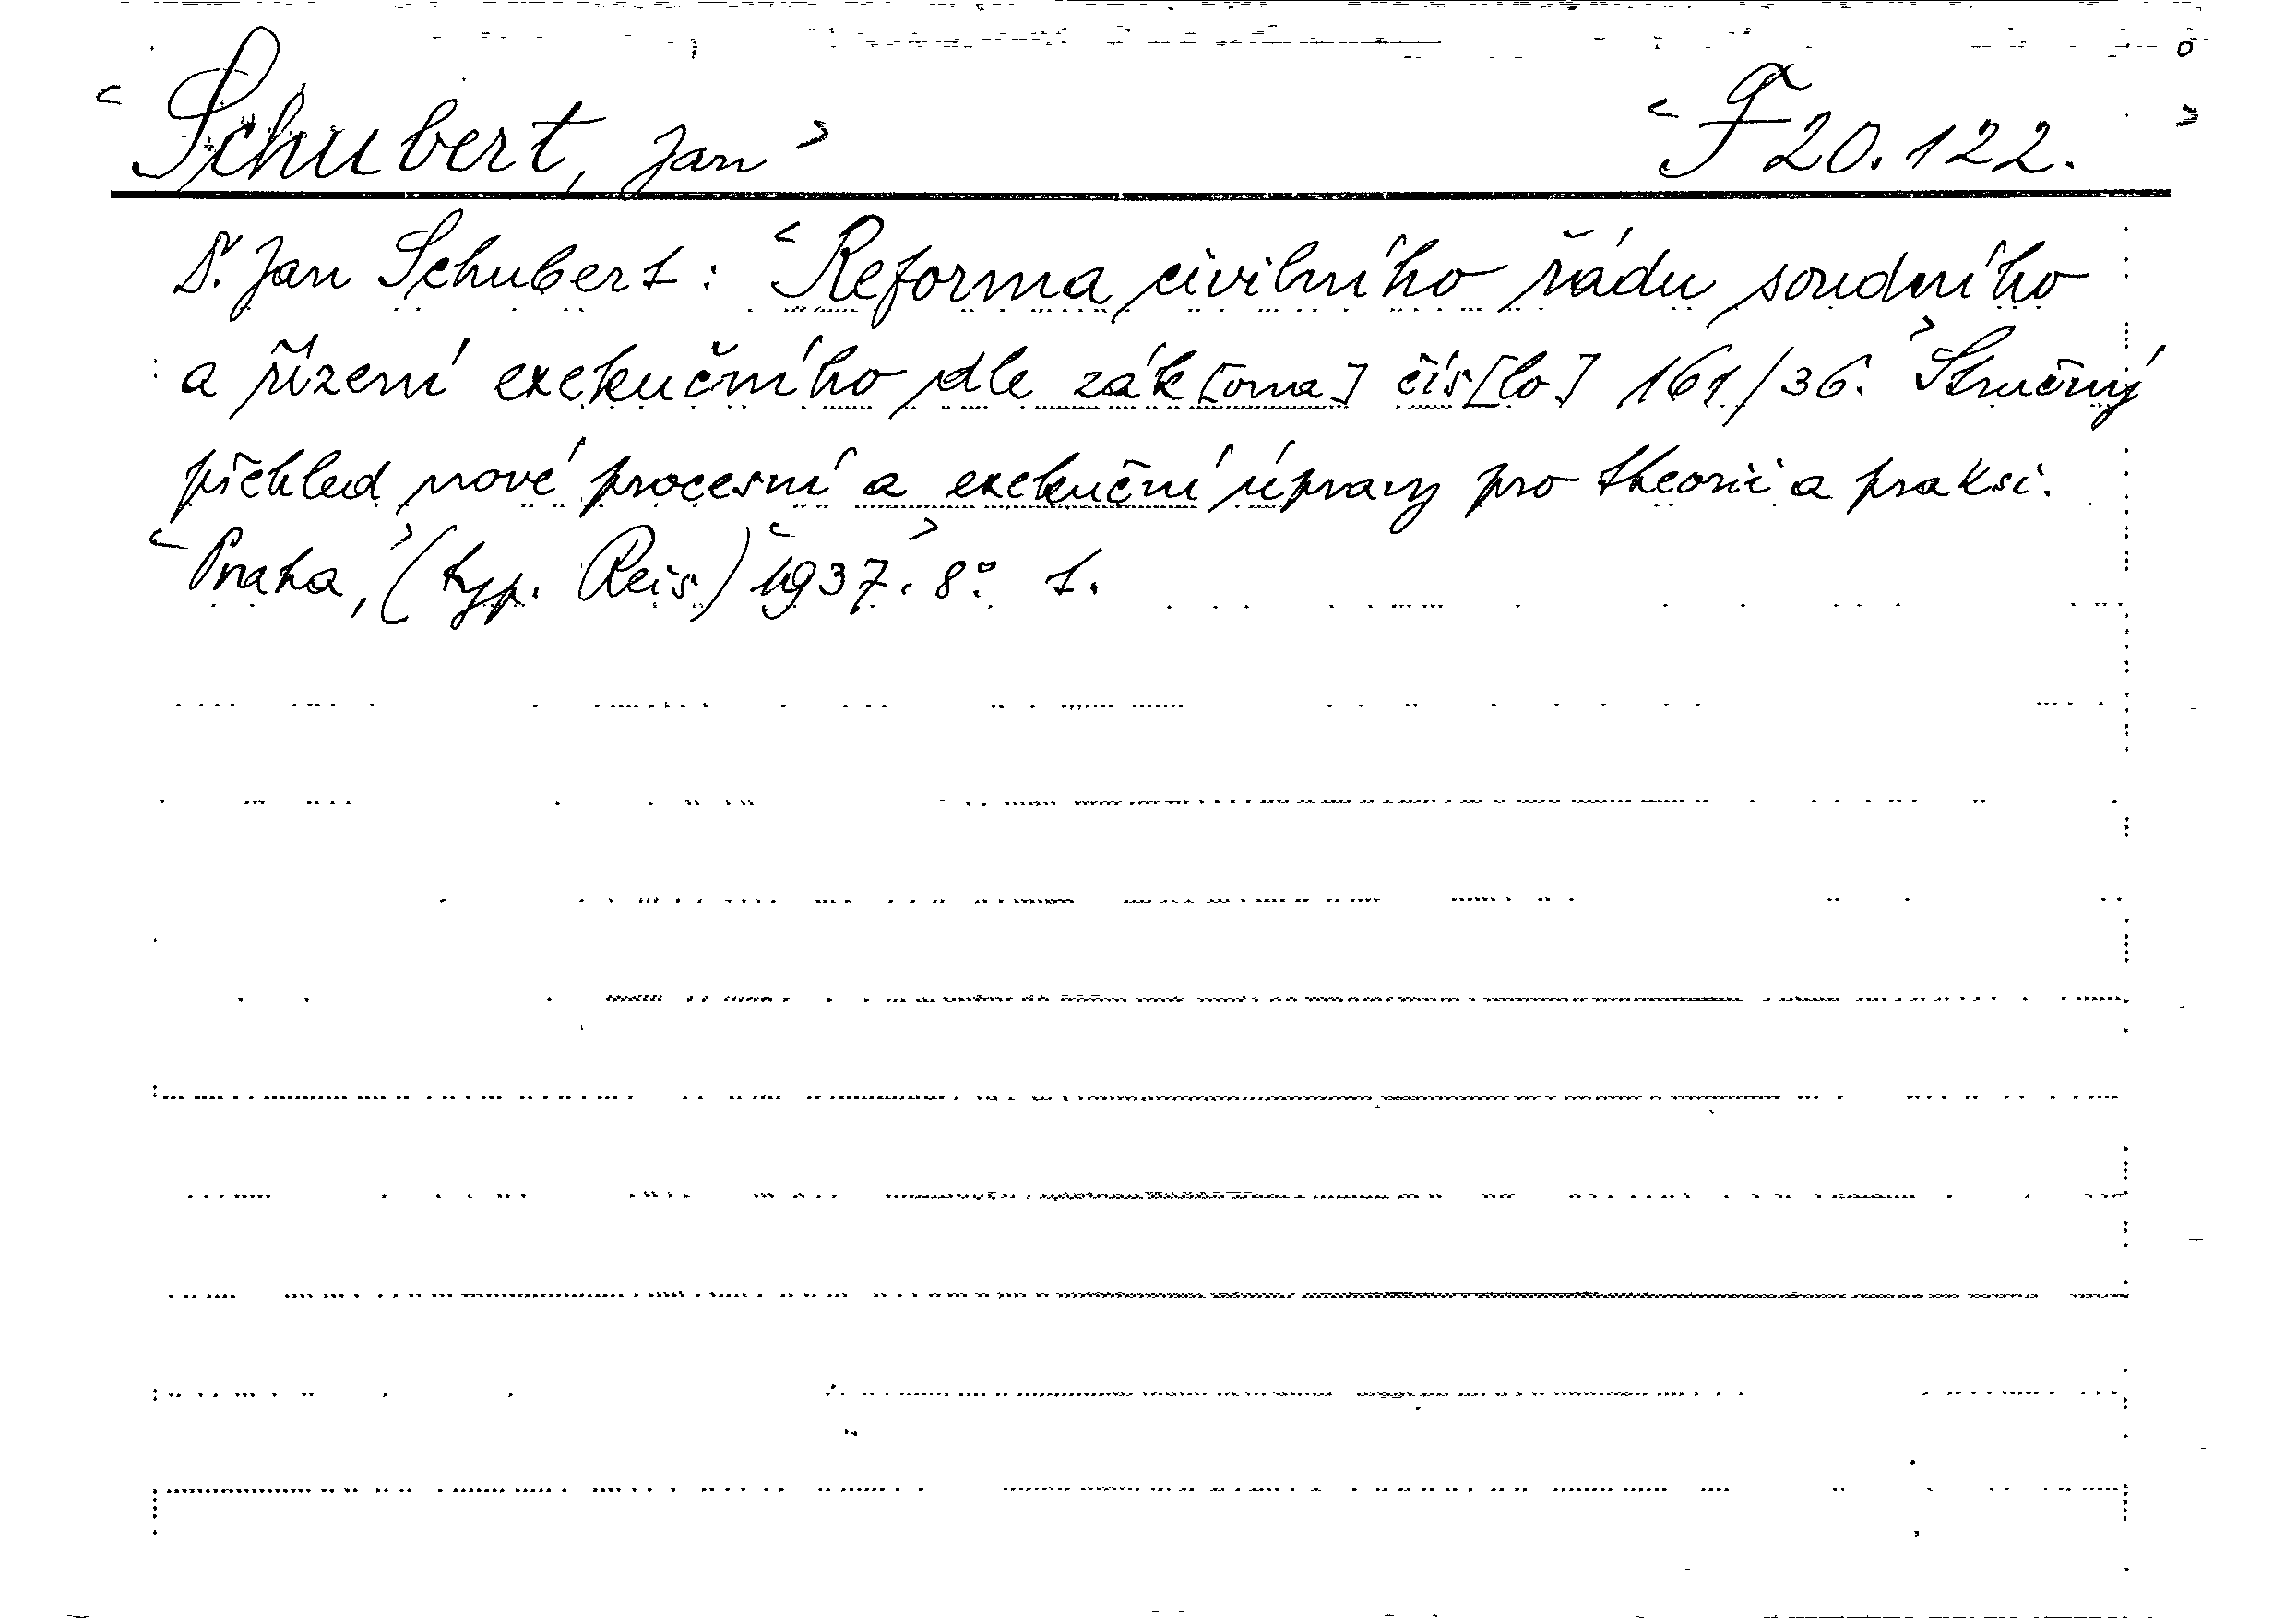 < Schubert, Jan > < F 20.122. >
Dr. Jan Schubert: < Reforma civilního řádu soudního
a řízení exekučního dle zák[ona] čís[lo] 161/36. > Stručný
přehled nové procesní a exekuční úpravy pro theorii a praksi.
< Praha, > (typ. Reis) < 1937. > 8° 1.